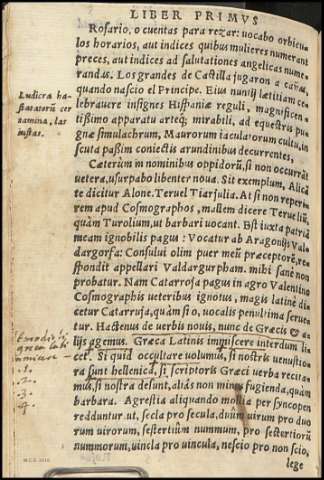 LIBER PRIMVS
Rosario, o cuentas para rezar: uocabo orbicu
los horarios, aut indices quibus mulieres numerant
preces, aut indices ad salutationes angelicas nume
randas. Los grandes de Castilla jugaron a cañas,
quando nascio el Principe. Eius nuntij lætitiam ce
lebrauere insignes Hispaniæ reguli, magnificen
tissimo apparatu arteq; mirabili, ad equestris pu
gnæ simulachrum, Maurorum iaculatorum cultu, in
scuta passim coniectis arundinibus decurrentes,
Ludicra ha
staratorũ cer
tamina, las
justas.
Cæterùm in nominibus oppidorũ, si non occurrãt
uetera, usurpabo libenter noua. Sit exemplum, Alicã
te dicitur Alone. Teruel Tiarjulia. At si non reperi
rem apud Cosmographos, mallem dicere Teruelũ,
quàm Turolium, ut barbari uocant. Est iuxta patriã
meam ignobilis pagus: Vocatur ab Aragonijs Val
dargorfa: Consului olim puer meũ præceptorẽ, re
spondit appellari Valdargurpham. mihi sanè non
probatur. Nam Catarroja pagus in agro Valentino
Cosmographis ueteribus ignotus, magis latinè di
cetur Catarruja, quàm si o, uocalis penultima serue
tur. Hactenus de uerbis nouis, nunc de Græcis & a
lijs agemus. Græca Latinis immiscere interdum li
cet. Si quid occultare uolumus, si nostris uenustio
ra sunt hellenica, si scriptoris Græci uerba recita
mus, si nostra desunt, aliàs non minùs fugienda, quàm
barbara. Agrestia aliquando mollia per syncopen
redduntur ut, secla pro secula, duûm uirum pro duo
rum uirorum, sestertiûm nummûm, pro sestertiorũ
nummorum, uincla pro uincula, nescio pro non scio,
græca lati
.1.
.2.
.3.
.4.
lege